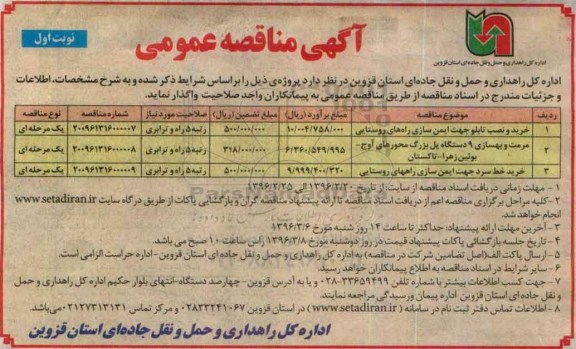 نوبت اول
آگهی مناقصه عمومی
اداره کل راهداری و حمل و نقل جاده‌ای استان قزوین
اداره کل راهداری و حمل و نقل جاده‌ای استان قزوین در نظر دارد پروژه‌ی ذیل را براساس شرایط ذکر شده و به شرح مشخصات، اطلاعات
و جزئیات مندرج در اسناد مناقصه از طریق مناقصه عمومی به پیمانکاران واجد صلاحیت واگذار نماید.
ردیف موضوع مناقصه مبلغ برآورد (ریال) مبلغ تضمین (ریال) صلاحیت مورد نیاز شماره مناقصه نوع مناقصه
۱ خرید و نصب تابلو جهت ایمن سازی راه‌های روستایی ۱۰/۰۰۴/۷۵۸/۰۰۰ ۵۰۰/۰۰۰/۰۰۰ رتبه ۵ راه و ترابری ۲۰۰۹۶۱۳۱۶۰۰۰۰۰۷ یک مرحله ای
۲ مرمت و بهسازی ۹ دستگاه پل بزرگ محورهای آوج- بوئین زهرا - تاکستان ۶/۳۶۰/۵۴۹/۹۹۵ ۳۱۸/۰۰۰/۰۰۰ رتبه ۵ راه و ترابری ۲۰۰۹۶۱۳۱۶۰۰۰۰۰۸ یک مرحله ای
۳ خرید خط سرد جهت ایمن سازی راههای روستایی ۹/۹۹۹/۴۰۰/۳۲۰ ۵۰۰/۰۰۰/۰۰۰ رتبه ۵ راه و ترابری ۲۰۰۹۶۱۳۱۶۰۰۰۰۰۹ یک مرحله ای
۱ - مهلت زمانی دریافت اسناد مناقصه از سایت: از تاریخ ۱۳۹۶/۲/۲۰ الی ۱۳۹۶/۲/۲۵
۲- کلیه مراحل برگزاری مناقصه اعم از دریافت اسناد مناقصه تا ارائه پیشنهاد مناقصه گران و بازگشایی پاکات از طریق درگاه سایت www.setadiran.ir
انجام خواهد شد.
۳- آخرین مهلت ارائه پیشنهاد: حداکثر تا ساعت ۱۴ روز شنبه مورخ ۱۳۹۶/۳/۶
۴- تاریخ جلسه بازگشائی پاکات پیشنهاد قیمت در روز دوشنبه مورخ ۱۳۹۶/۳/۸ راس ساعت ۱۰ صبح می باشد.
۵- ارسال پاکت الف(اصل تضامین شرکت در مناقصه) به اداره کل راهداری و حمل و نقل جاده ای استان قزوین - اداره حراست الزامی است.
۶- سایر شرایط در اسناد مناقصه به اطلاع پیمانکاران خواهد رسید.
۷- جهت کسب اطلاعات بیشتر با شماره تلفن ۳۳۶۵۹۴۹۹-۰۲۸ و یا به آدرس قزوین- چهارصد دستگاه- انتهای بلوار حکیم اداره کل راهداری و حمل
و نقل جاده ای استان قزوین اداره پیمان ورسیدگی مراجعه نمایند.
۸- اطلاعات تماس دفتر ثبت نام در سامانه ( www.setadiran.ir) در استان قزوین ۰۲۸۳۳۲۴۱۰۶۷ و مرکز تماس ۰۲۱۲۷۳۱۳۱۳۱ می‌باشد.
اداره کل راهداری و حمل و نقل جاده‌ای استان قزوین